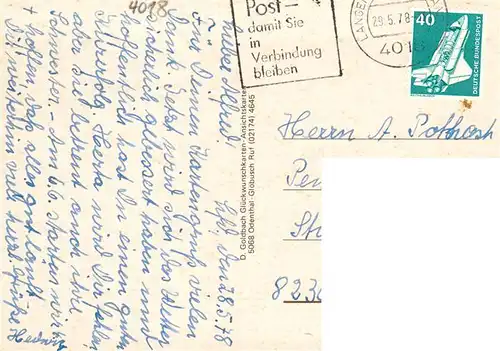 4018
Post –
damit Sie
in
Verbindung
bleiben
LANGEN
29.5.78
4018
40
DEUTSCHE BUNDESPOST
28.5.78
Lieber Alfred
Deinen Kartengruß vielen
Dank. Jetzt wird sich das Wetter
sicherlich gebessert haben und
hoffentlich hast Du einen guten
Kurerfolg. Herta wird Dir fehlen,
aber sie betreut auch ihre
Schwester. Am 6.6. starten wir
+ hoffen, daß alles gut läuft.
viel herzl. Grüße
Hedwig
D. Goldbach Glückwunschkarten-Ansichtskarten
5068 Odenthal-Glöbusch Ruf (02174) 4645
Herrn A. Potthast
Pen
St
823